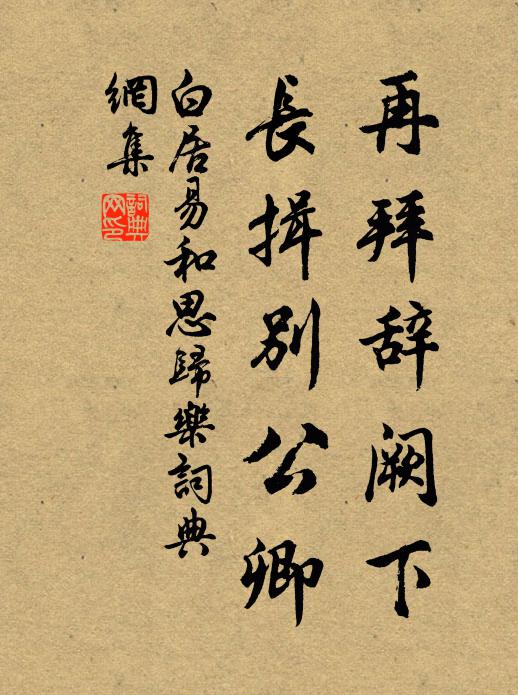 再拜辞阙下
長揖別公卿
白居易和思歸樂詞典
網集
詞典
网印